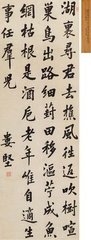 湖裏尋君去樵風往返吹樹喧
巢鳥出路細葑田移漚苧成魚
網枯根是酒卮老年唯自適生
事任羣兒
婁堅